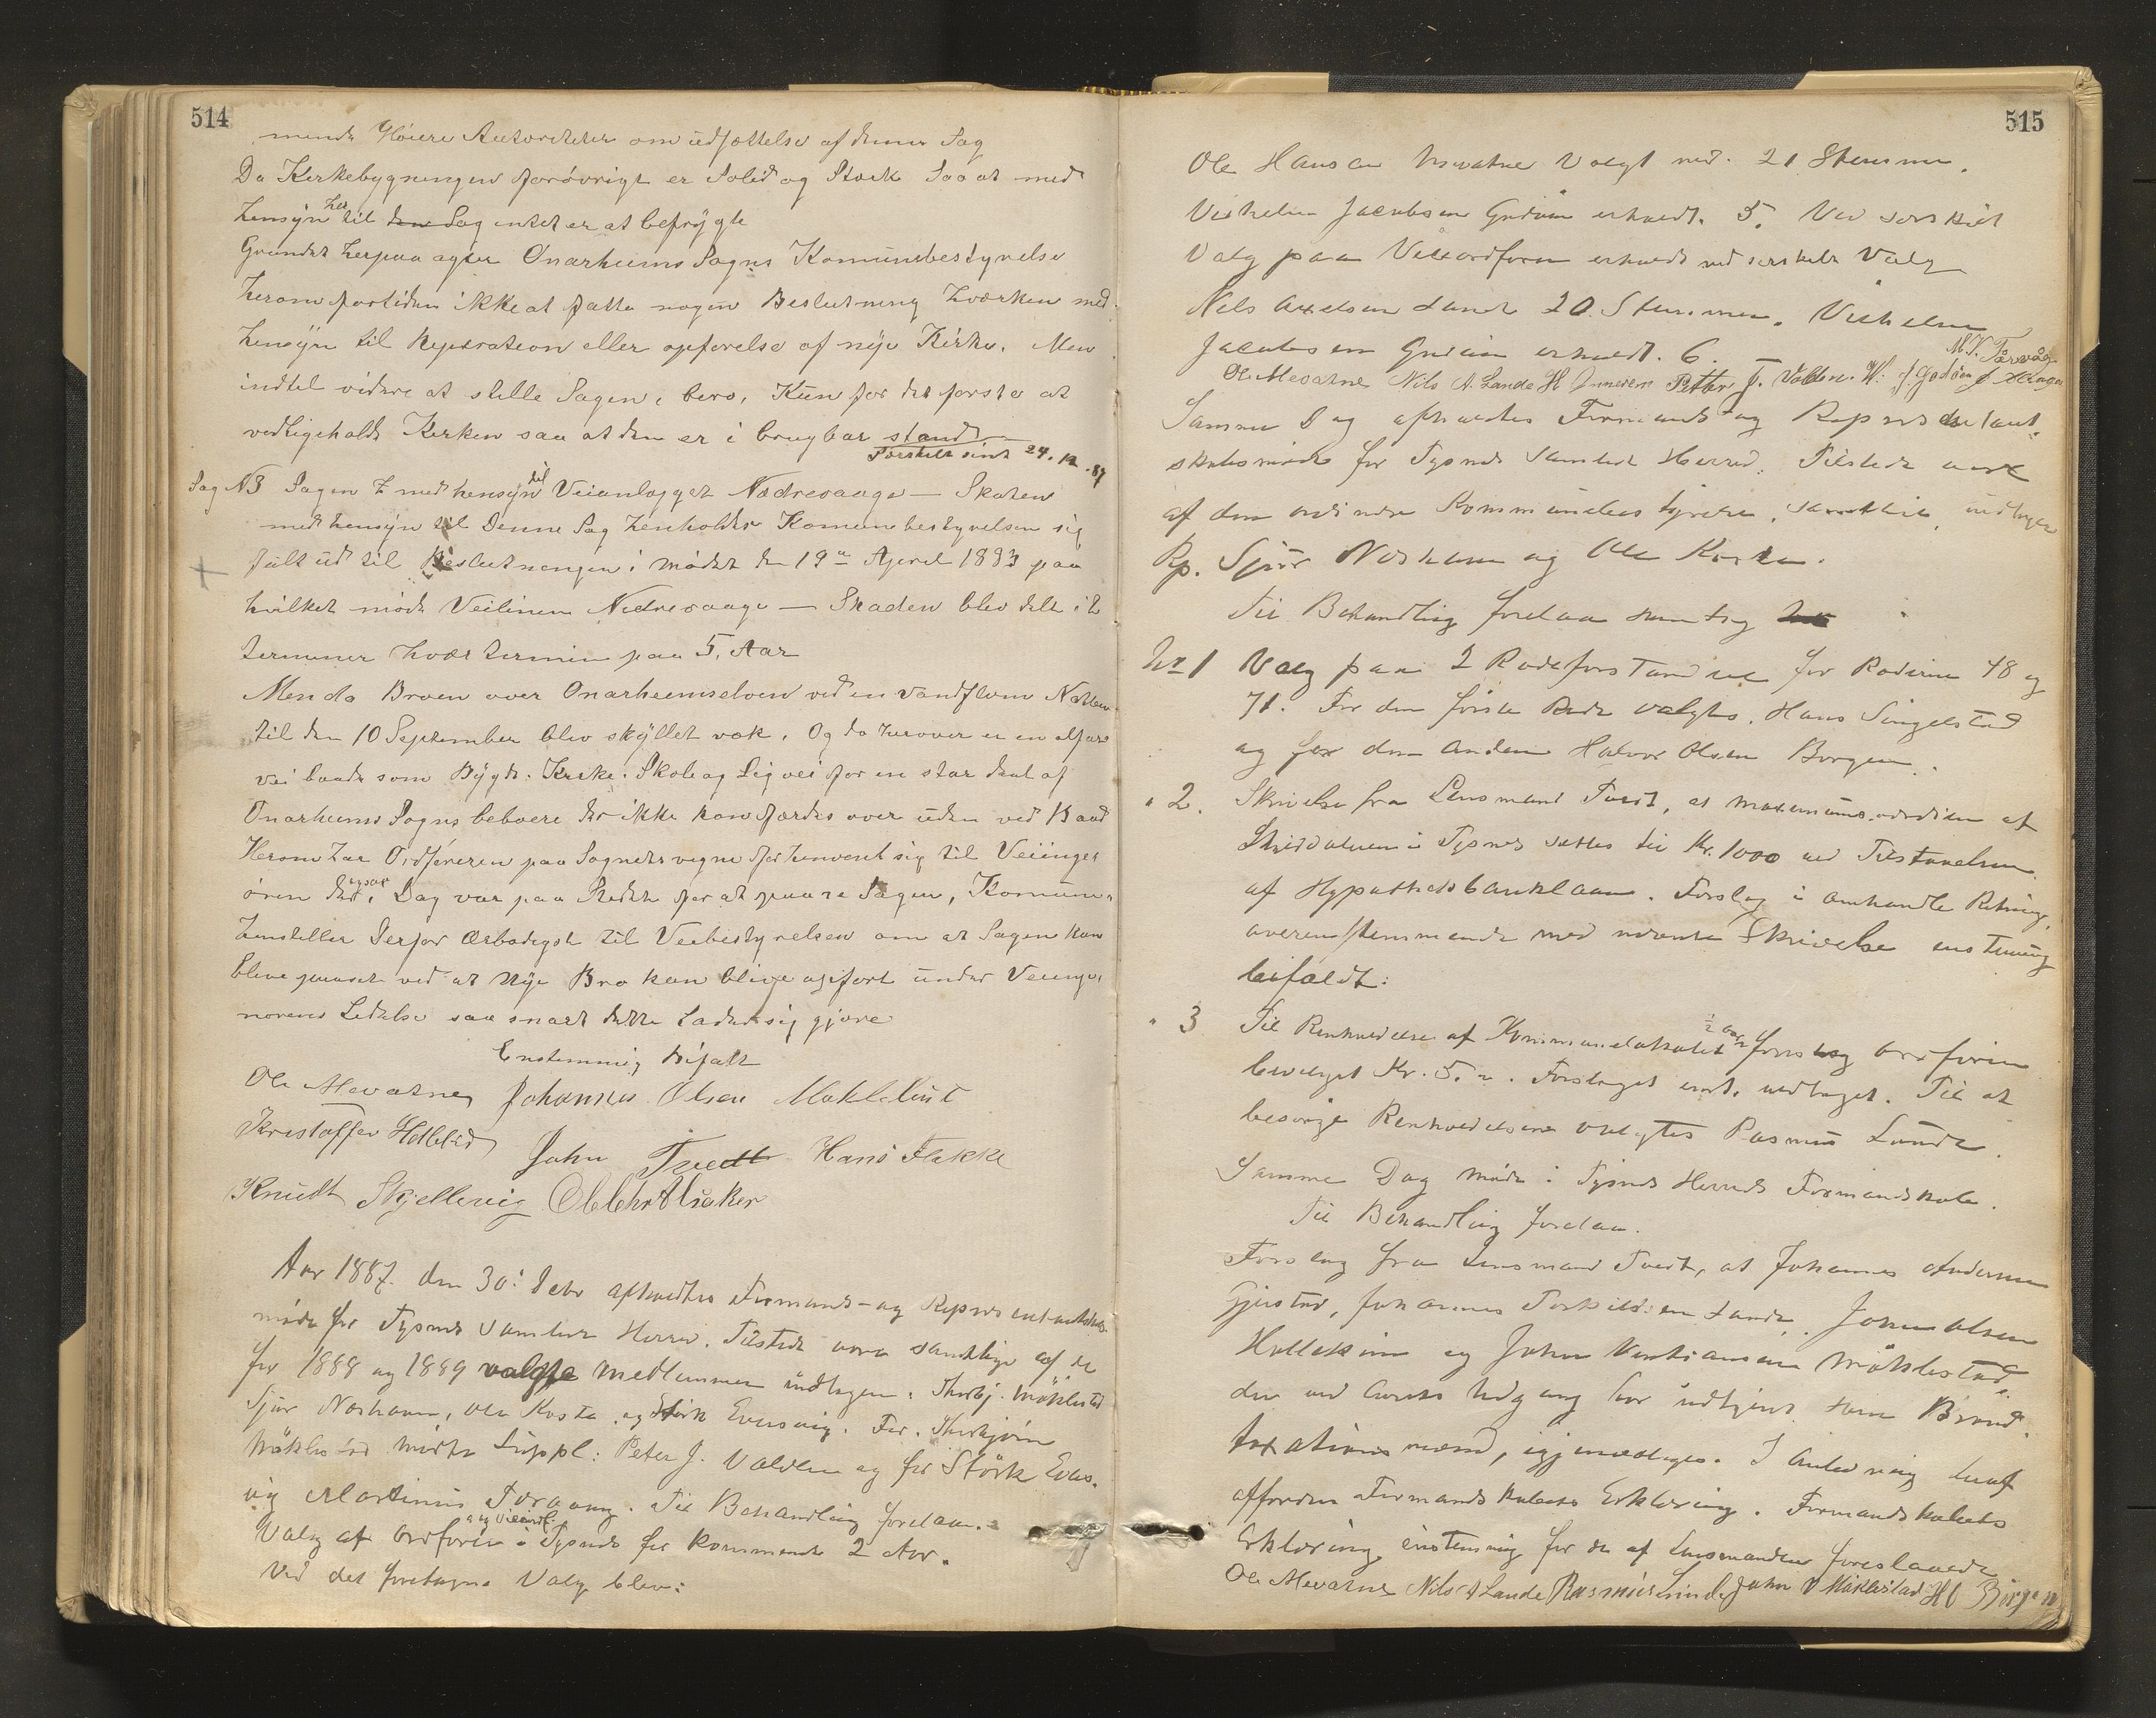 514
mende Høiere Autoriteter om udsættelse af denne Sag
Da Kirkebygningen forøvrigt er Solid og Stærk Saa at med
hensyn her til den Sag intet er at befrygte
Grundet herpaa agter Onarheims Sogns Komunebestyrelse
herom fortiden ikke at fatte nogen Beslutning hværken med
hensyn til Reperation eller opførelse af nye Kirke. Men
indtil videre at stille Sagen i bero, Kun for det første at
vedligeholde Kirken saa at den er i brugbar stand
Særskilt sendt 24.12.87
Sag N3 Sagen med hensyn til Veianlægget Nedrevaage — Skaten
med hensyn til Denne Sag henholder Komunebestyrelsen sig
fuldt ud til Beslutningen i mødet den 19de April 1883 paa
hvilket møde Veilinien Nedrevaage — Skaden blev delt i 2
terminer hvær termin paa 5. Aar
Men da Broen over Onarheimselven ved en vandflom Natten
til den 10 September blev skyllet væk. Og da herover er en alfare
vei baade som Bygde. Kirke. Skole og Ligvei for en stor deel af
Onarheims Sogns beboere der ikke kan færdes over uden ved Baad
Herom har Ordføreren paa Sognets vegne før henvent sig til Veiinge
øren der i Dag var paa Stedet for at paase Sagen, Komunen
henstiller Derfor ærbødigst til Veibestyrelsen om at Sagen kan
blive paaset ved at nye Bro kan blive opført under Veiinge
niørens Ledelse saa snart dette Lader sig gjøre
Enstemmig Bifalt
Ole Mevatne Johannes Olsen Møklebust
Kristoffer Helleland John Tvedt Hans Flakke
Knudt Skjellevig Ole Chr Alsaker
Aar 1887 den 30. Decbr afholdtes Formands- og Repræsentantskabs-
møde for Tysnes samlede Herred. Tilstede vare samtlige af de
for 1888 og 1889 valgte Medlemmer undtagen. Thorbj. Møklestad
Sjur Norhavn, Ole Kosta og Størk Evensvig. For Thorbjørn
Møklestad mødte Suppl: Peter J. Valden og for Størk Evens-
vig Martinus Torvaag. Til Behandling forelaa.
Valg af Ordfører og Viceordf. i Tysnes for kommende 2 Aar.
Ved det foretagne Valg blev:
515
Ole Hansen Mevatne valgt med 21 Stemmer.
Vilhelm Jacobsen Godøen erholdt. 5. Ved særskilt
Valg paa Viceordfører erholdt ved særskilt Valg
Nils Axelsen Lande 20 Stemmer. Vilhelm
Jacobsen Godøen erholdt. 6.
M. K. Torvåg
Ole Mevatne Nils A. Lande H Petter J. Valden. W. J. Godøen
Samme Dag afholdtes Formands og Repræsentant-
skabsmøde for Tysnes Samlede Herred. Tilstede vare
af den ordinære Kommunebestyrelse, samtlige, undtagen
Rp. Sjur Norhavn og Ole Kosta.
Til Behandling forelaa som Sag
No 1 Valg paa 2 Rodeforstandere for Roderne 48 og
71. For den første Rode valgtes. Hans Singelstad
og for den anden Halvor Olsen Borgen.
" 2. Skrivelse fra Lensmand Tvedt, at maximumsværdien af
Skyldalen i Tysnes sættes til Kr. 1000 ved Tilstaaelsen
af Hypothekbanklaan. Forslag i omhandlte Retning,
overensstemmende med nævnte Skrivelse enstemmig
bifaldt:
" 3 Til Renholdelse af Kommunelokalet 1/2 Aar foreslog Ordføren
bevilget Kr. 5.". Forslaget enst. vedtaget. Til at
besørge Renholdelsen valgtes Rasmus Lunde.
Samme Dag møde i Tysnes Herreds Formandskab.
Til Behandling forelaa.
Forslag fra Lensmand Tvedt, at Johannes Andersen
Gjerstad, Johannes Torkildsen Lande, John Olsen
Hollekim og John Møklestad,
der ved Aarets Udgang har udtjent som Brand-
taxationsmænd, igjenvælges. I Anledning heraf
affordres Formandskabets Erklæring. Formandskabets
Erklæring enstemmig for de af Lensmanden foreslaaede
Ole Mevatne Nils A Lande Rasmus Lunde John V Møklestad HO Borgen